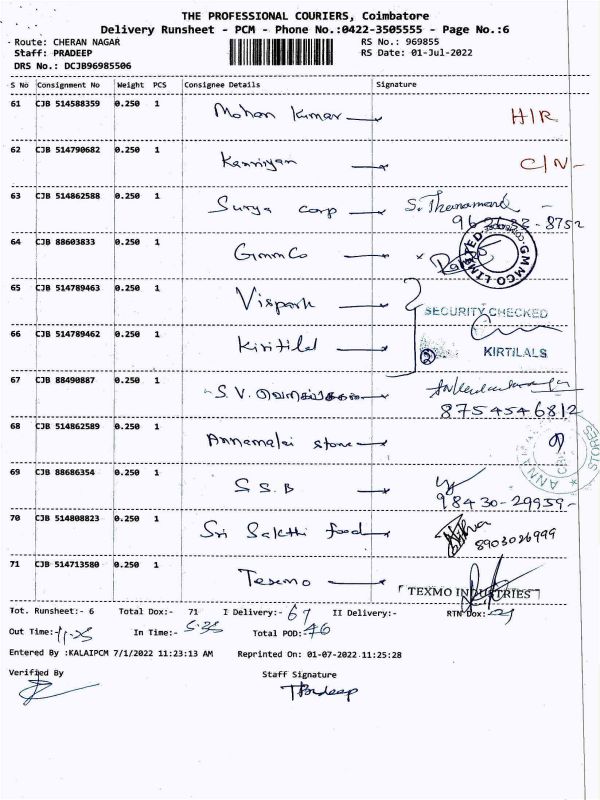 THE PROFESSIONAL COURIERS, Coimbatore
Delivery Runsheet - PCM - Phone No.:0422-3505555 - Page No.:6
Route: CHERAN NAGAR RS No.: 969855
Staff: PRADEEP RS Date: 01-Jul-2022
DRS No.: DCJB96985506
S No Consignment No Weight PCS Consignee Details Signature
61 CJB 514588359 0.250 1 Mohan Kumar H/R
62 CJB 514790682 0.250 1 Kanniyan C/N-
63 CJB 514862588 0.250 1 Surya corp
8752
64 CJB 88603833 0.250 1 GmmCo GMMCO LIMITED
65 CJB 514789463 0.250 1 Vispark
SECURITY CHECKED
66 CJB 514789462 0.250 1 Kiritilal
2 KIRTILALS
67 CJB 88490887 0.250 1 S.V.
8754546812
68 CJB 514862589 0.250 1 Annamalai stone
STORES
69 CJB 88686354 0.250 1 S S B
98430-29959-
70 CJB 514808823 0.250 1 Sri Sakthi food
8903026999
71 CJB 514713580 0.250 1 Texmo
TEXMO INDUSTRIES
Tot. Runsheet:- 6 Total Dox:- 71 I Delivery:- 67 II Delivery:- RTN Dox:-
Out Time:- 11.25 In Time:- 5.35 Total POD:- 46
Entered By :KALAIPCM 7/1/2022 11:23:13 AM Reprinted On: 01-07-2022 11:25:28
Verified By Staff Signature
TPradeep